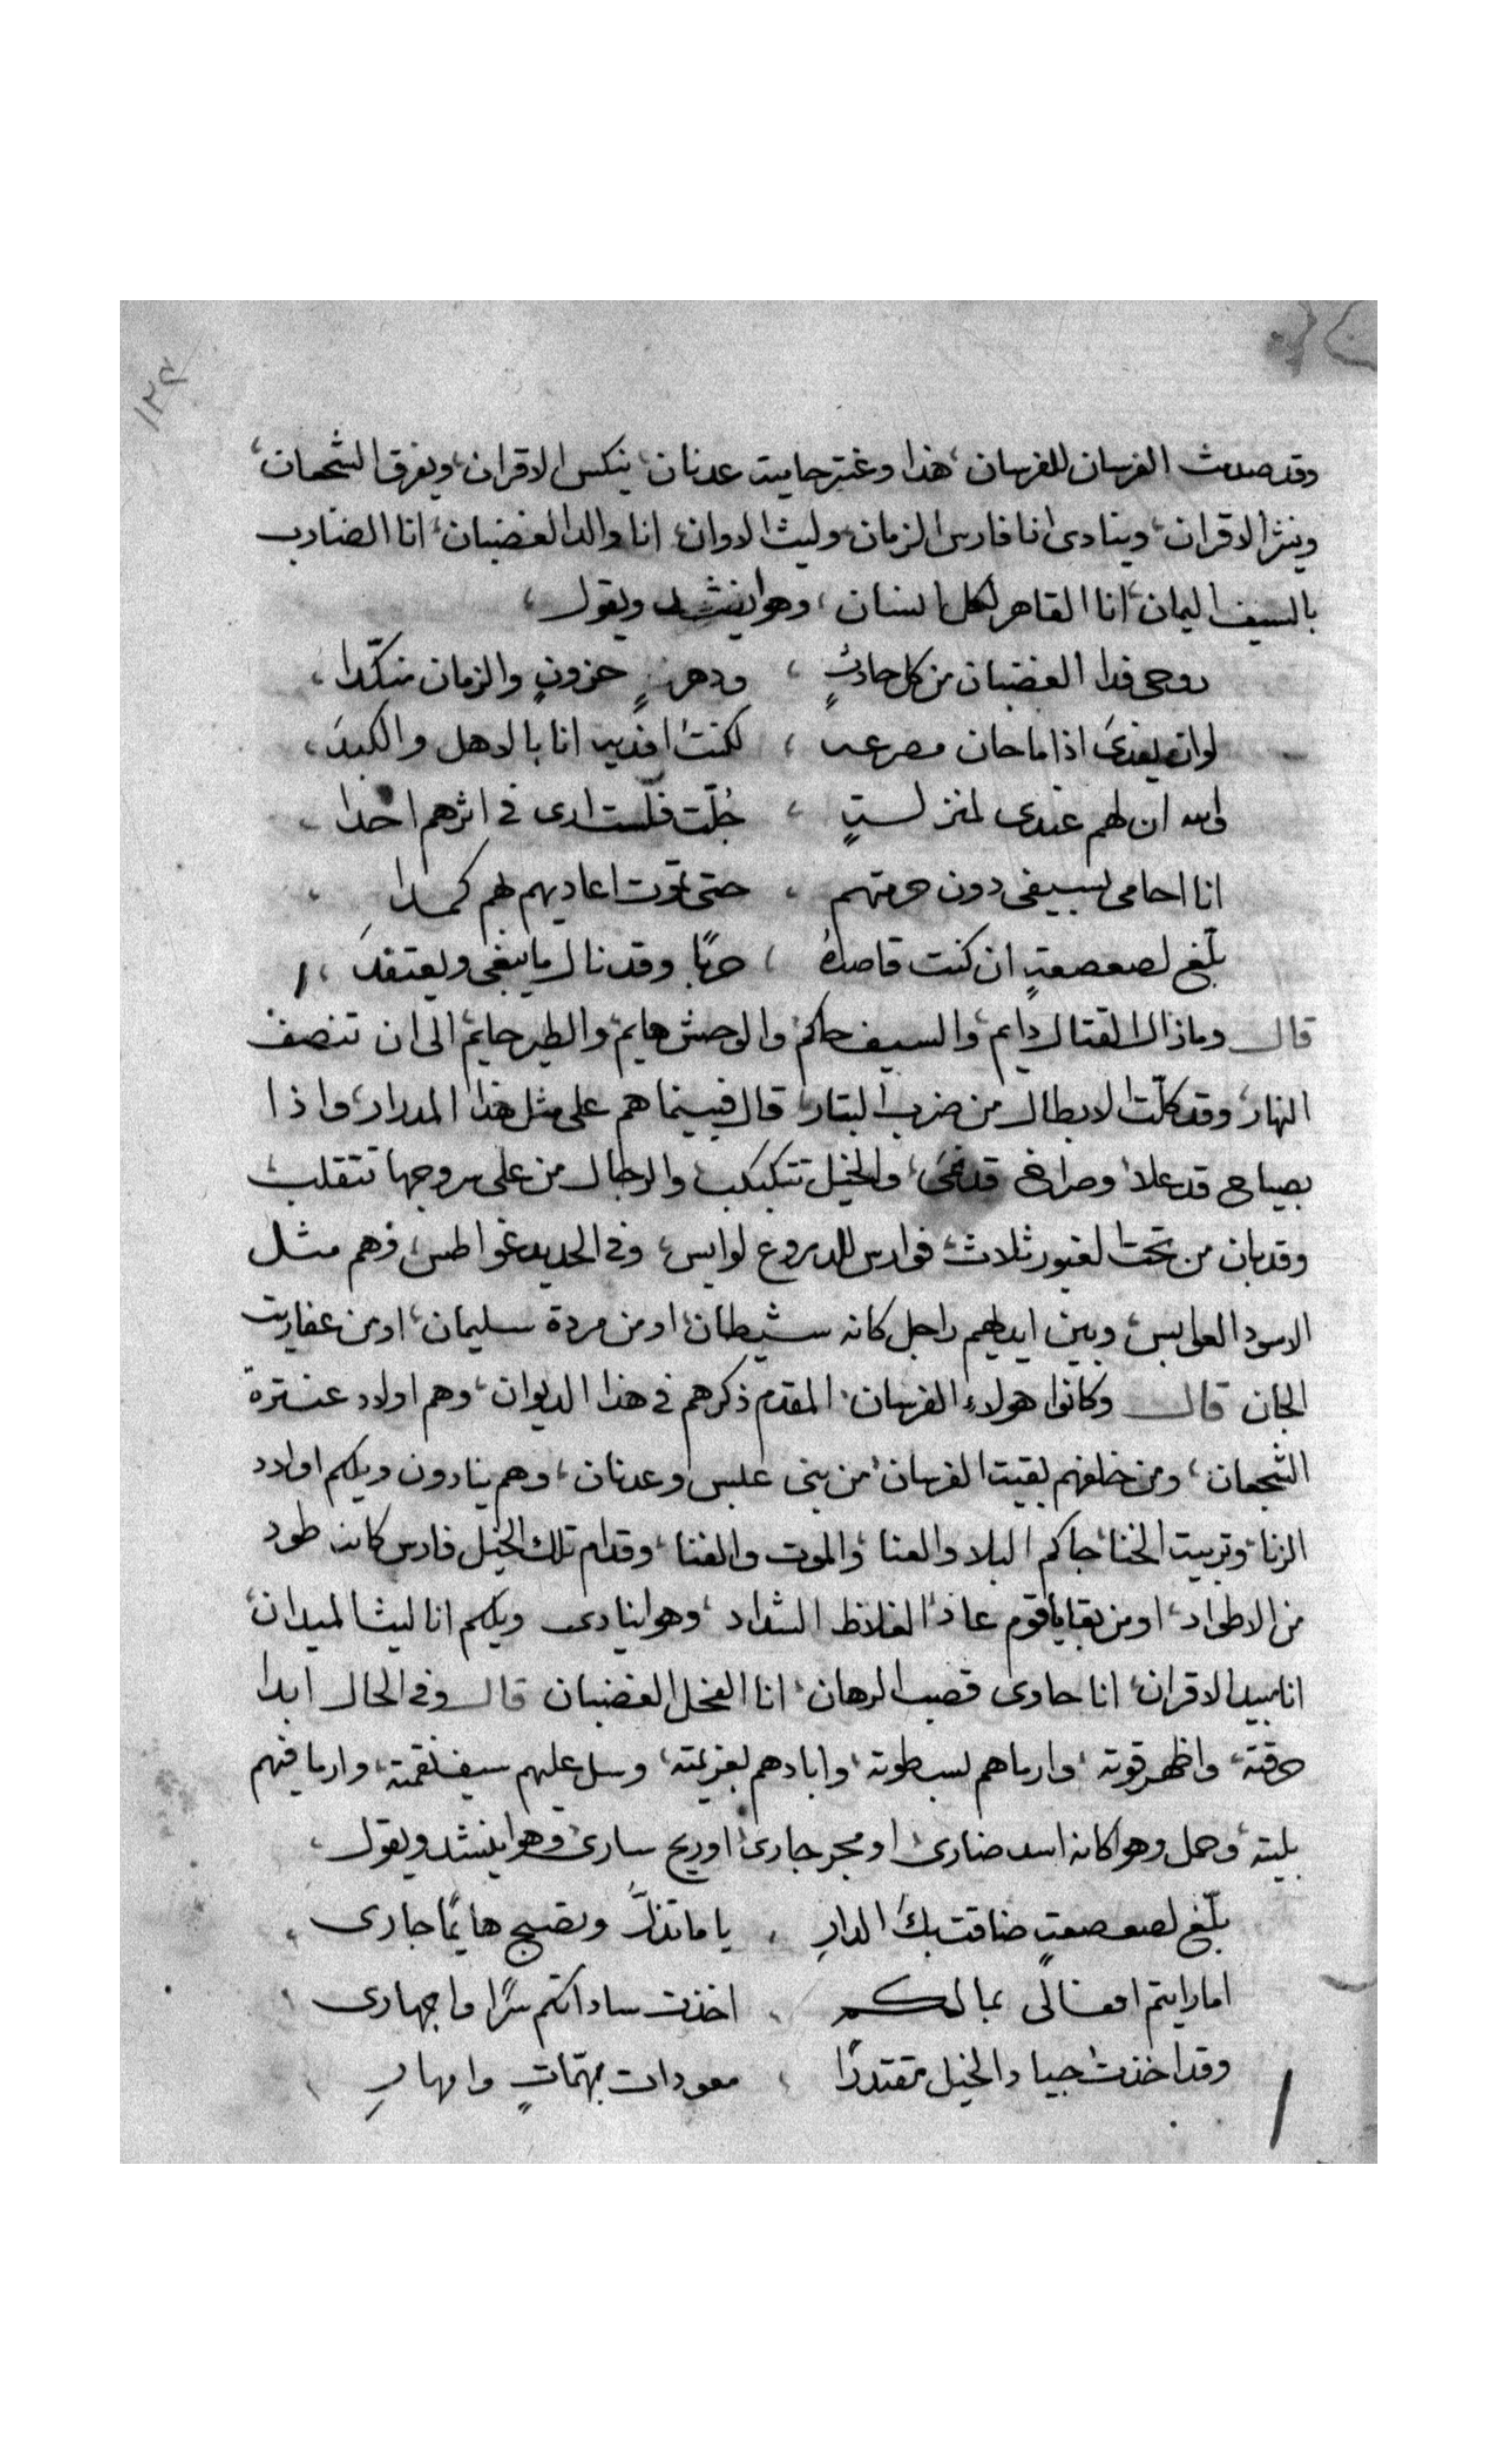 ١٢٤
وقد صدمت الفرسان للفرسان، هذا وعنتر حاميت عدنان، ينكس الاقران، ويفرق الشجعان،
وينثر الاقران، وينادى انا فارس الزمان، وليث الاوان، انا والد الغضبان، انا الضارب
بالسيف اليمان، انا القاهر لكل انسان، وهوا ينشد ويقول،
روحى فدا الغضبان من كل حادثٍ ، ودهرٍ حزونٍ والزمان منكّدا،
لوانه يفدىَ اذا ما حان مصرعه ، لكنت افديه انا بالاهل والكبدَ،
والله ان لهم عندى لمنزلستٍ ، جُلّت فلست ارى فى اثرهم احدا ،
انا احامى بسيفى دون حرمتهم ، حتى تموت اعاديهم لهم كمدا ،
بلّغ لصعصعةٍ ان كنت قاصدهُ ، حربًا وقد نال ما يبغى ويعتقدَ ،
قال وماذال القتال دايم، والسيف حاكم، والوحش هايم، والطير حايم، الى ان تنصف
النهار، وقد كلّت الابطال من ضرب البتار، قال فبينما هم على مثل هذا المدرار، واذا
بصياح قد علا، وصراخ قد نمىَ، والخيل تتكبكب، والرجال من على سروجها تتقلب،
وقد بان من تحت الغبور ثلاث، فوارس للدروع لوابس، وفى الحديد غواطس، وهم مثل
الاسود العوابس، وبين ايديهم راجل كانه شيطان، او من مردة سليمان، او من عفاريت
الجان قال وكانوا هولاءِ الفرسان، المقدم ذكرهم فى هذا الديوان، وهم اولاد عنترة
الشجعان، ومن خلفهم بقيت الفرسان، من بنى عبس وعدنان، وهم ينادون ويلكم اولاد
الزنا، وتربيت الخنا، جاكم البلا والعنا، والموت والفنا، وقدام تلك الخيل فارس كانه طود
من الاطواد، او من بقايا قوم عاد، الغلاظ الشداد، وهوا ينادى ويلكم انا ليث الميدان،
انا مبيد الاقران، انا حاوى قصب الرهان، انا الفحل الغضبان قال وفى الحال ابدا
حرقته، واظهر قوته، وارماهم بسطوته، وابادهم بعزيمته، وسل عليهم سيف نقمته، وارما فيهم
بليته، وحمل وهوا كانه اسد ضارى، او مجر جارى، اوريح سارى، وهوا ينشد ويقول،
بلّغ لصعصعةٍ ضاقت بكَ الدارِ ، ياما تذلّ وتصبح هايمًا جارى ،
اما رايتم افعالى بمالكم ، اخذت ساداتكم سّرًا واجهارى ،
وقد اخذت جياد الخيل مقتدرًا ، معودات بهمّاتٍ وامهارِ ،